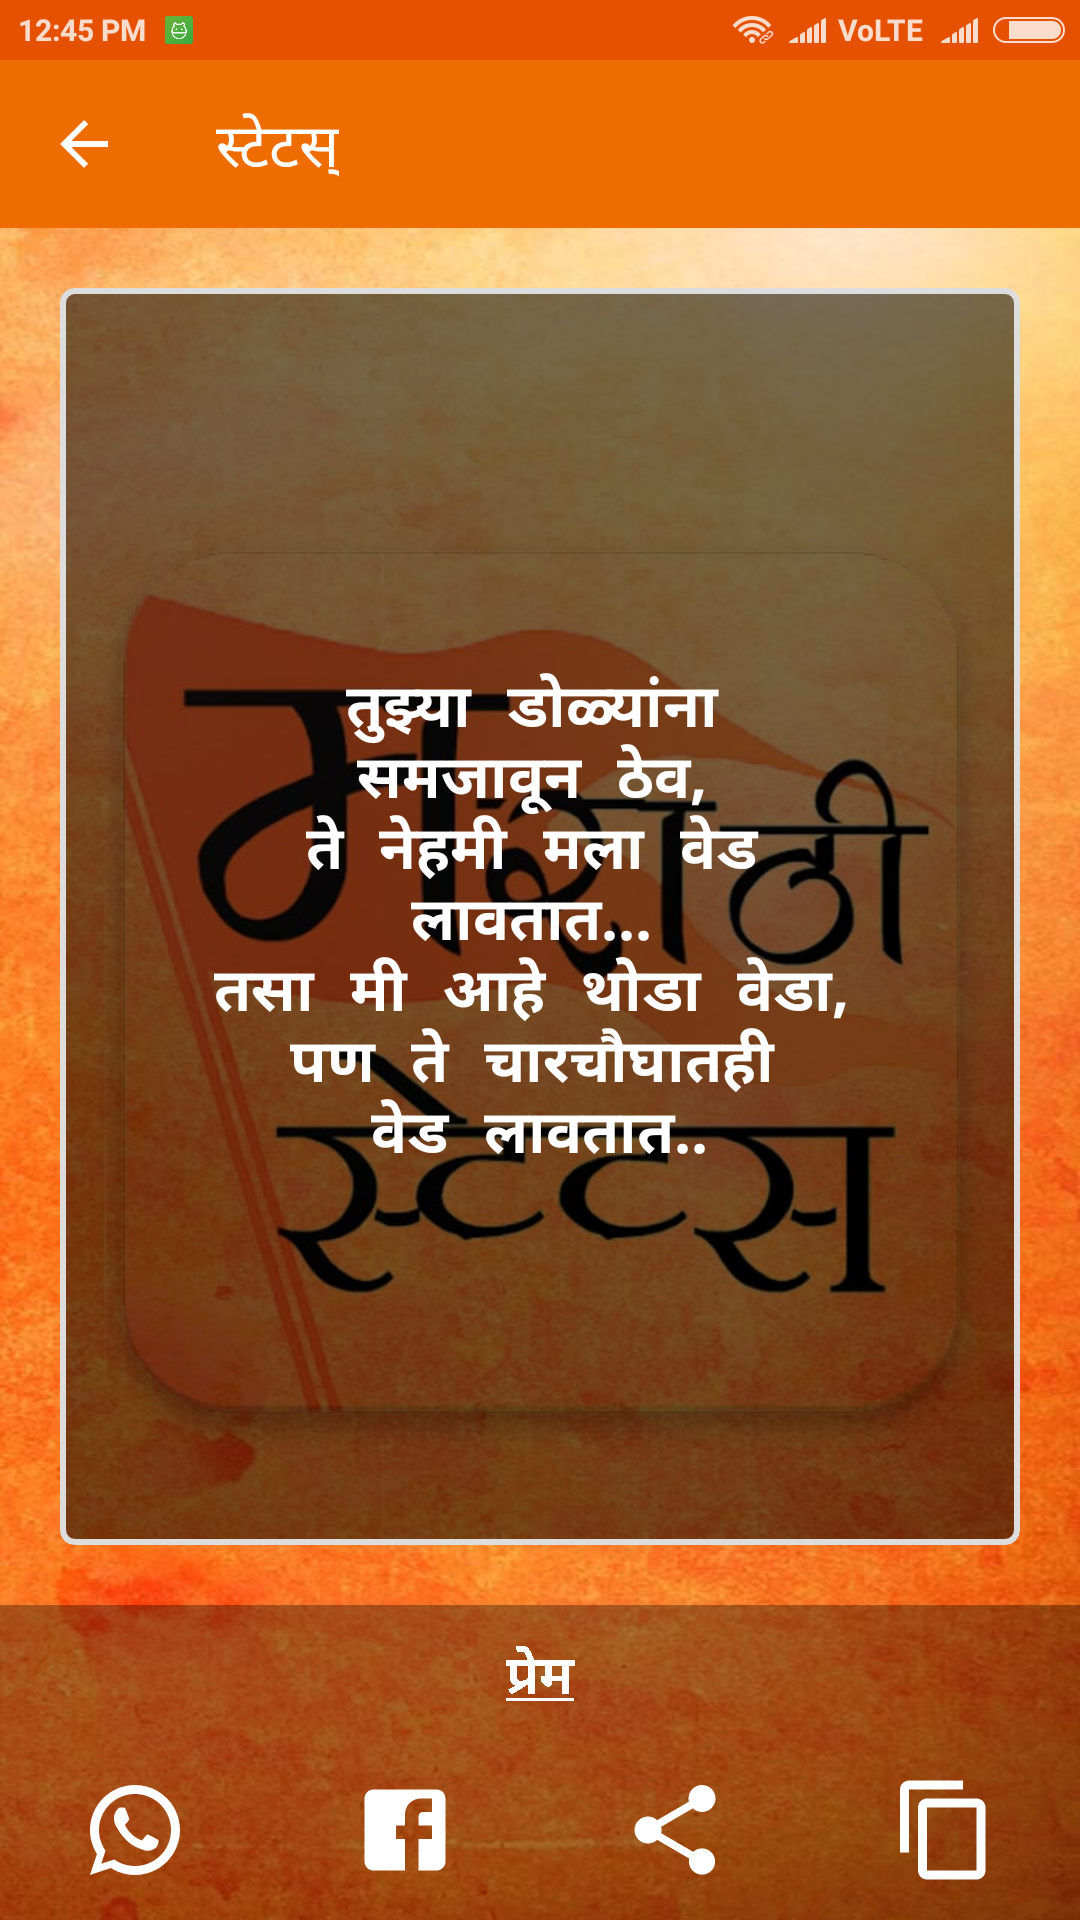 12:45 PM VoLTE
स्टेटस्
मराठी
स्टेटस
तुझ्या डोळ्यांना
समजावून ठेव,
ते नेहमी मला वेड
लावतात...
तसा मी आहे थोडा वेडा,
पण ते चारचौघातही
वेड लावतात..
प्रेम